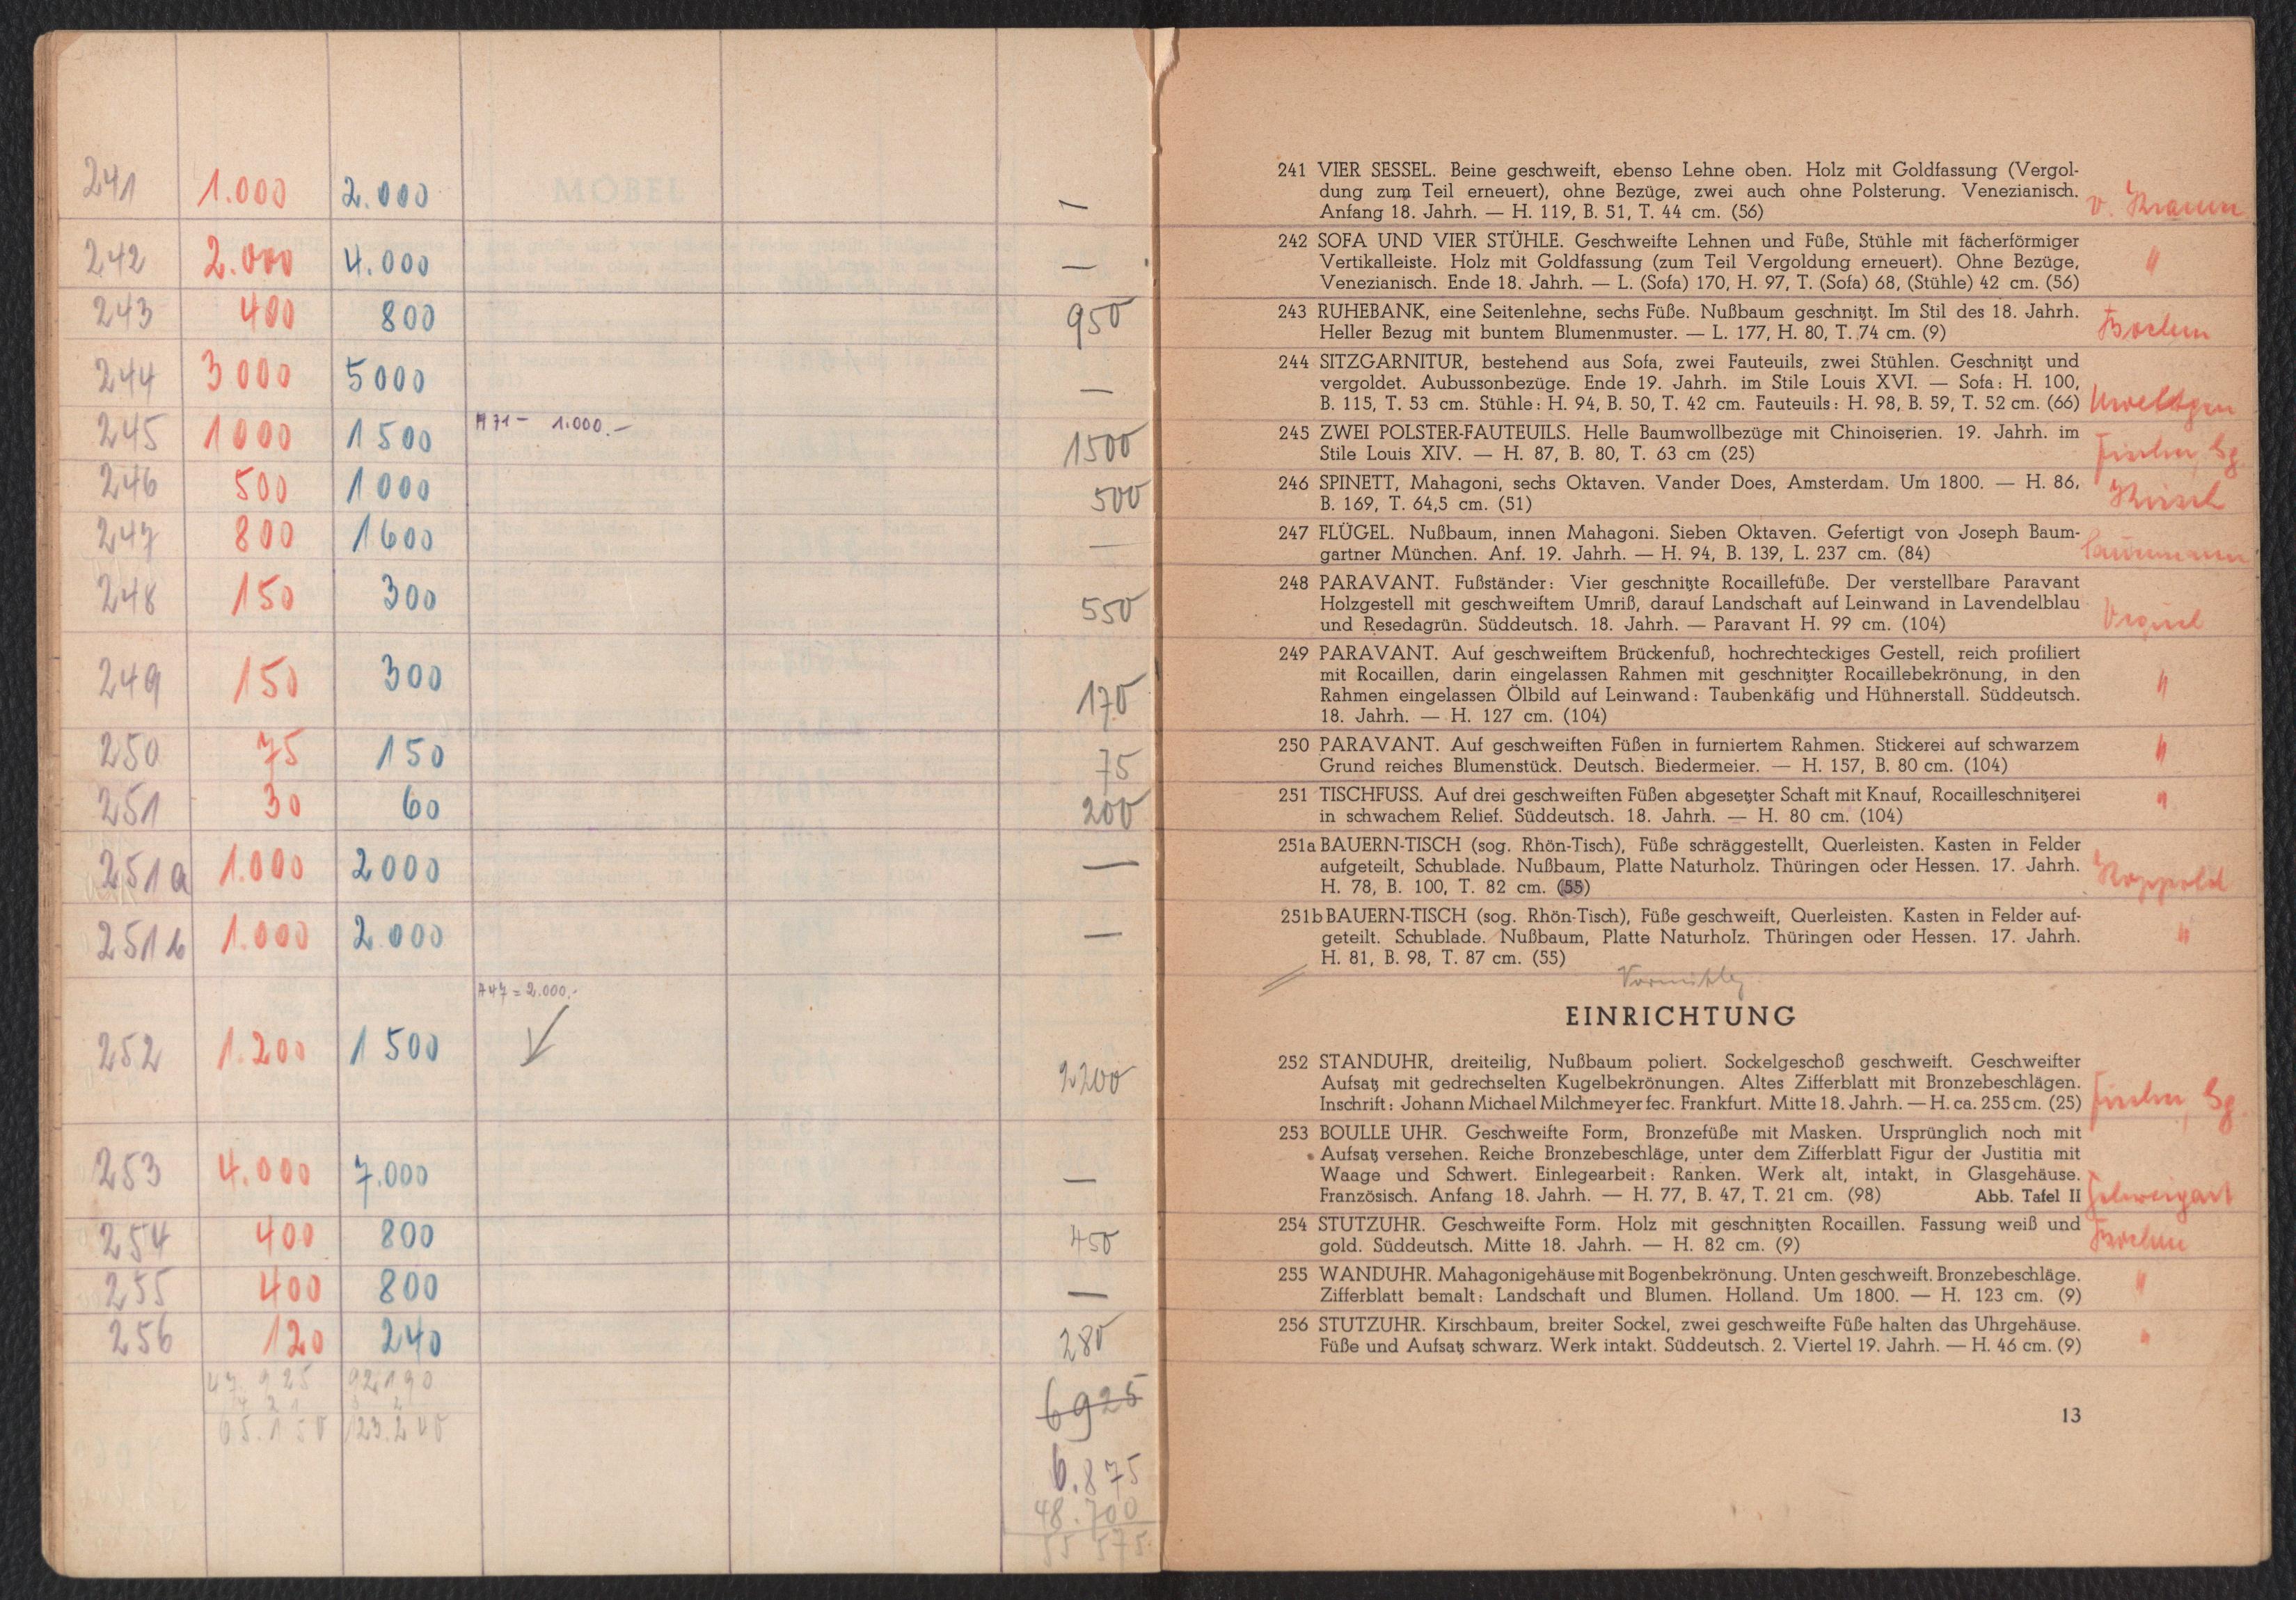 241 1.000 2.000 —
242 2.000 4.000 —
243 400 800 950
244 3000 5000 —
245 1000 1500 A 71 – 1.000.– 1500
246 500 1000 500
247 800 1600 —
248 150 300 550
249 150 300 170
250 75 150 75
251 30 60 200
251a 1.000 2000 —
251b 1.000 2.000 —
252 1.200 1500 A 47 = 2.000.- 2200
253 4.000 7.000 —
254 400 800 450
255 400 800 —
256 120 240 280
47.925 92.190
65.150 123.240
6925
6.875
48.700
55 575.
241 VIER SESSEL. Beine geschweift, ebenso Lehne oben. Holz mit Goldfassung (Vergol-
dung zum Teil erneuert), ohne Bezüge, zwei auch ohne Polsterung. Venezianisch.
Anfang 18. Jahrh. — H. 119, B. 51, T. 44 cm. (56)
242 SOFA UND VIER STÜHLE. Geschweifte Lehnen und Füße, Stühle mit fächerförmiger "
Vertikalleiste. Holz mit Goldfassung (zum Teil Vergoldung erneuert). Ohne Bezüge,
Venezianisch. Ende 18. Jahrh. — L. (Sofa) 170, H. 97, T. (Sofa) 68, (Stühle) 42 cm. (56)
243 RUHEBANK, eine Seitenlehne, sechs Füße. Nußbaum geschnitzt. Im Stil des 18. Jahrh.
Heller Bezug mit buntem Blumenmuster. — L. 177, H. 80, T. 74 cm. (9)
244 SITZGARNITUR, bestehend aus Sofa, zwei Fauteuils, zwei Stühlen. Geschnitzt und
vergoldet. Aubussonbezüge. Ende 19. Jahrh. im Stile Louis XVI. — Sofa: H. 100,
B. 115, T. 53 cm. Stühle: H. 94, B. 50, T. 42 cm. Fauteuils: H. 98, B. 59, T. 52 cm. (66)
245 ZWEI POLSTER-FAUTEUILS. Helle Baumwollbezüge mit Chinoiserien. 19. Jahrh. im
Stile Louis XIV. — H. 87, B. 80, T. 63 cm (25) Fischer, Bg
246 SPINETT, Mahagoni, sechs Oktaven. Vander Does, Amsterdam. Um 1800. — H. 86,
B. 169, T. 64,5 cm. (51)
247 FLÜGEL. Nußbaum, innen Mahagoni. Sieben Oktaven. Gefertigt von Joseph Baum-
gartner München. Anf. 19. Jahrh. — H. 94, B. 139, L. 237 cm. (84)
248 PARAVANT. Fußständer: Vier geschnitzte Rocaillefüße. Der verstellbare Paravant
Holzgestell mit geschweiftem Umriß, darauf Landschaft auf Leinwand in Lavendelblau
und Resedagrün. Süddeutsch. 18. Jahrh. — Paravant H. 99 cm. (104)
249 PARAVANT. Auf geschweiftem Brückenfuß, hochrechteckiges Gestell, reich profiliert
mit Rocaillen, darin eingelassen Rahmen mit geschnitzter Rocaillebekrönung, in den "
Rahmen eingelassen Ölbild auf Leinwand: Taubenkäfig und Hühnerstall. Süddeutsch.
18. Jahrh. — H. 127 cm. (104)
250 PARAVANT. Auf geschweiften Füßen in furniertem Rahmen. Stickerei auf schwarzem "
Grund reiches Blumenstück. Deutsch. Biedermeier. — H. 157, B. 80 cm. (104)
251 TISCHFUSS. Auf drei geschweiften Füßen abgesetzter Schaft mit Knauf, Rocailleschnitzerei "
in schwachem Relief. Süddeutsch. 18. Jahrh. — H. 80 cm. (104)
251a BAUERN-TISCH (sog. Rhön-Tisch), Füße schräggestellt, Querleisten. Kasten in Felder
aufgeteilt, Schublade. Nußbaum, Platte Naturholz. Thüringen oder Hessen. 17. Jahrh. Koppold
H. 78, B. 100, T. 82 cm. (55)
251b BAUERN-TISCH (sog. Rhön-Tisch), Füße geschweift, Querleisten. Kasten in Felder auf-
geteilt. Schublade. Nußbaum, Platte Naturholz. Thüringen oder Hessen. 17. Jahrh. "
H. 81, B. 98, T. 87 cm. (55)
EINRICHTUNG
252 STANDUHR, dreiteilig, Nußbaum poliert. Sockelgeschoß geschweift. Geschweifter
Aufsatz mit gedrechselten Kugelbekrönungen. Altes Zifferblatt mit Bronzebeschlägen.
Inschrift: Johann Michael Milchmeyer fec. Frankfurt. Mitte 18. Jahrh. — H. ca. 255 cm. (25) Fischer, Bg
253 BOULLE UHR. Geschweifte Form, Bronzefüße mit Masken. Ursprünglich noch mit
Aufsatz versehen. Reiche Bronzebeschläge, unter dem Zifferblatt Figur der Justitia mit
Waage und Schwert. Einlegearbeit: Ranken. Werk alt, intakt, in Glasgehäuse.
Französisch. Anfang 18. Jahrh. — H. 77, B. 47, T. 21 cm. (98) Abb. Tafel II Schweigart
254 STUTZUHR. Geschweifte Form. Holz mit geschnitzten Rocaillen. Fassung weiß und
gold. Süddeutsch. Mitte 18. Jahrh. — H. 82 cm. (9)
255 WANDUHR. Mahagonigehäuse mit Bogenbekrönung. Unten geschweift. Bronzebeschläge. "
Zifferblatt bemalt: Landschaft und Blumen. Holland. Um 1800. — H. 123 cm. (9)
256 STUTZUHR. Kirschbaum, breiter Sockel, zwei geschweifte Füße halten das Uhrgehäuse. "
Füße und Aufsatz schwarz. Werk intakt. Süddeutsch. 2. Viertel 19. Jahrh. — H. 46 cm. (9)
13